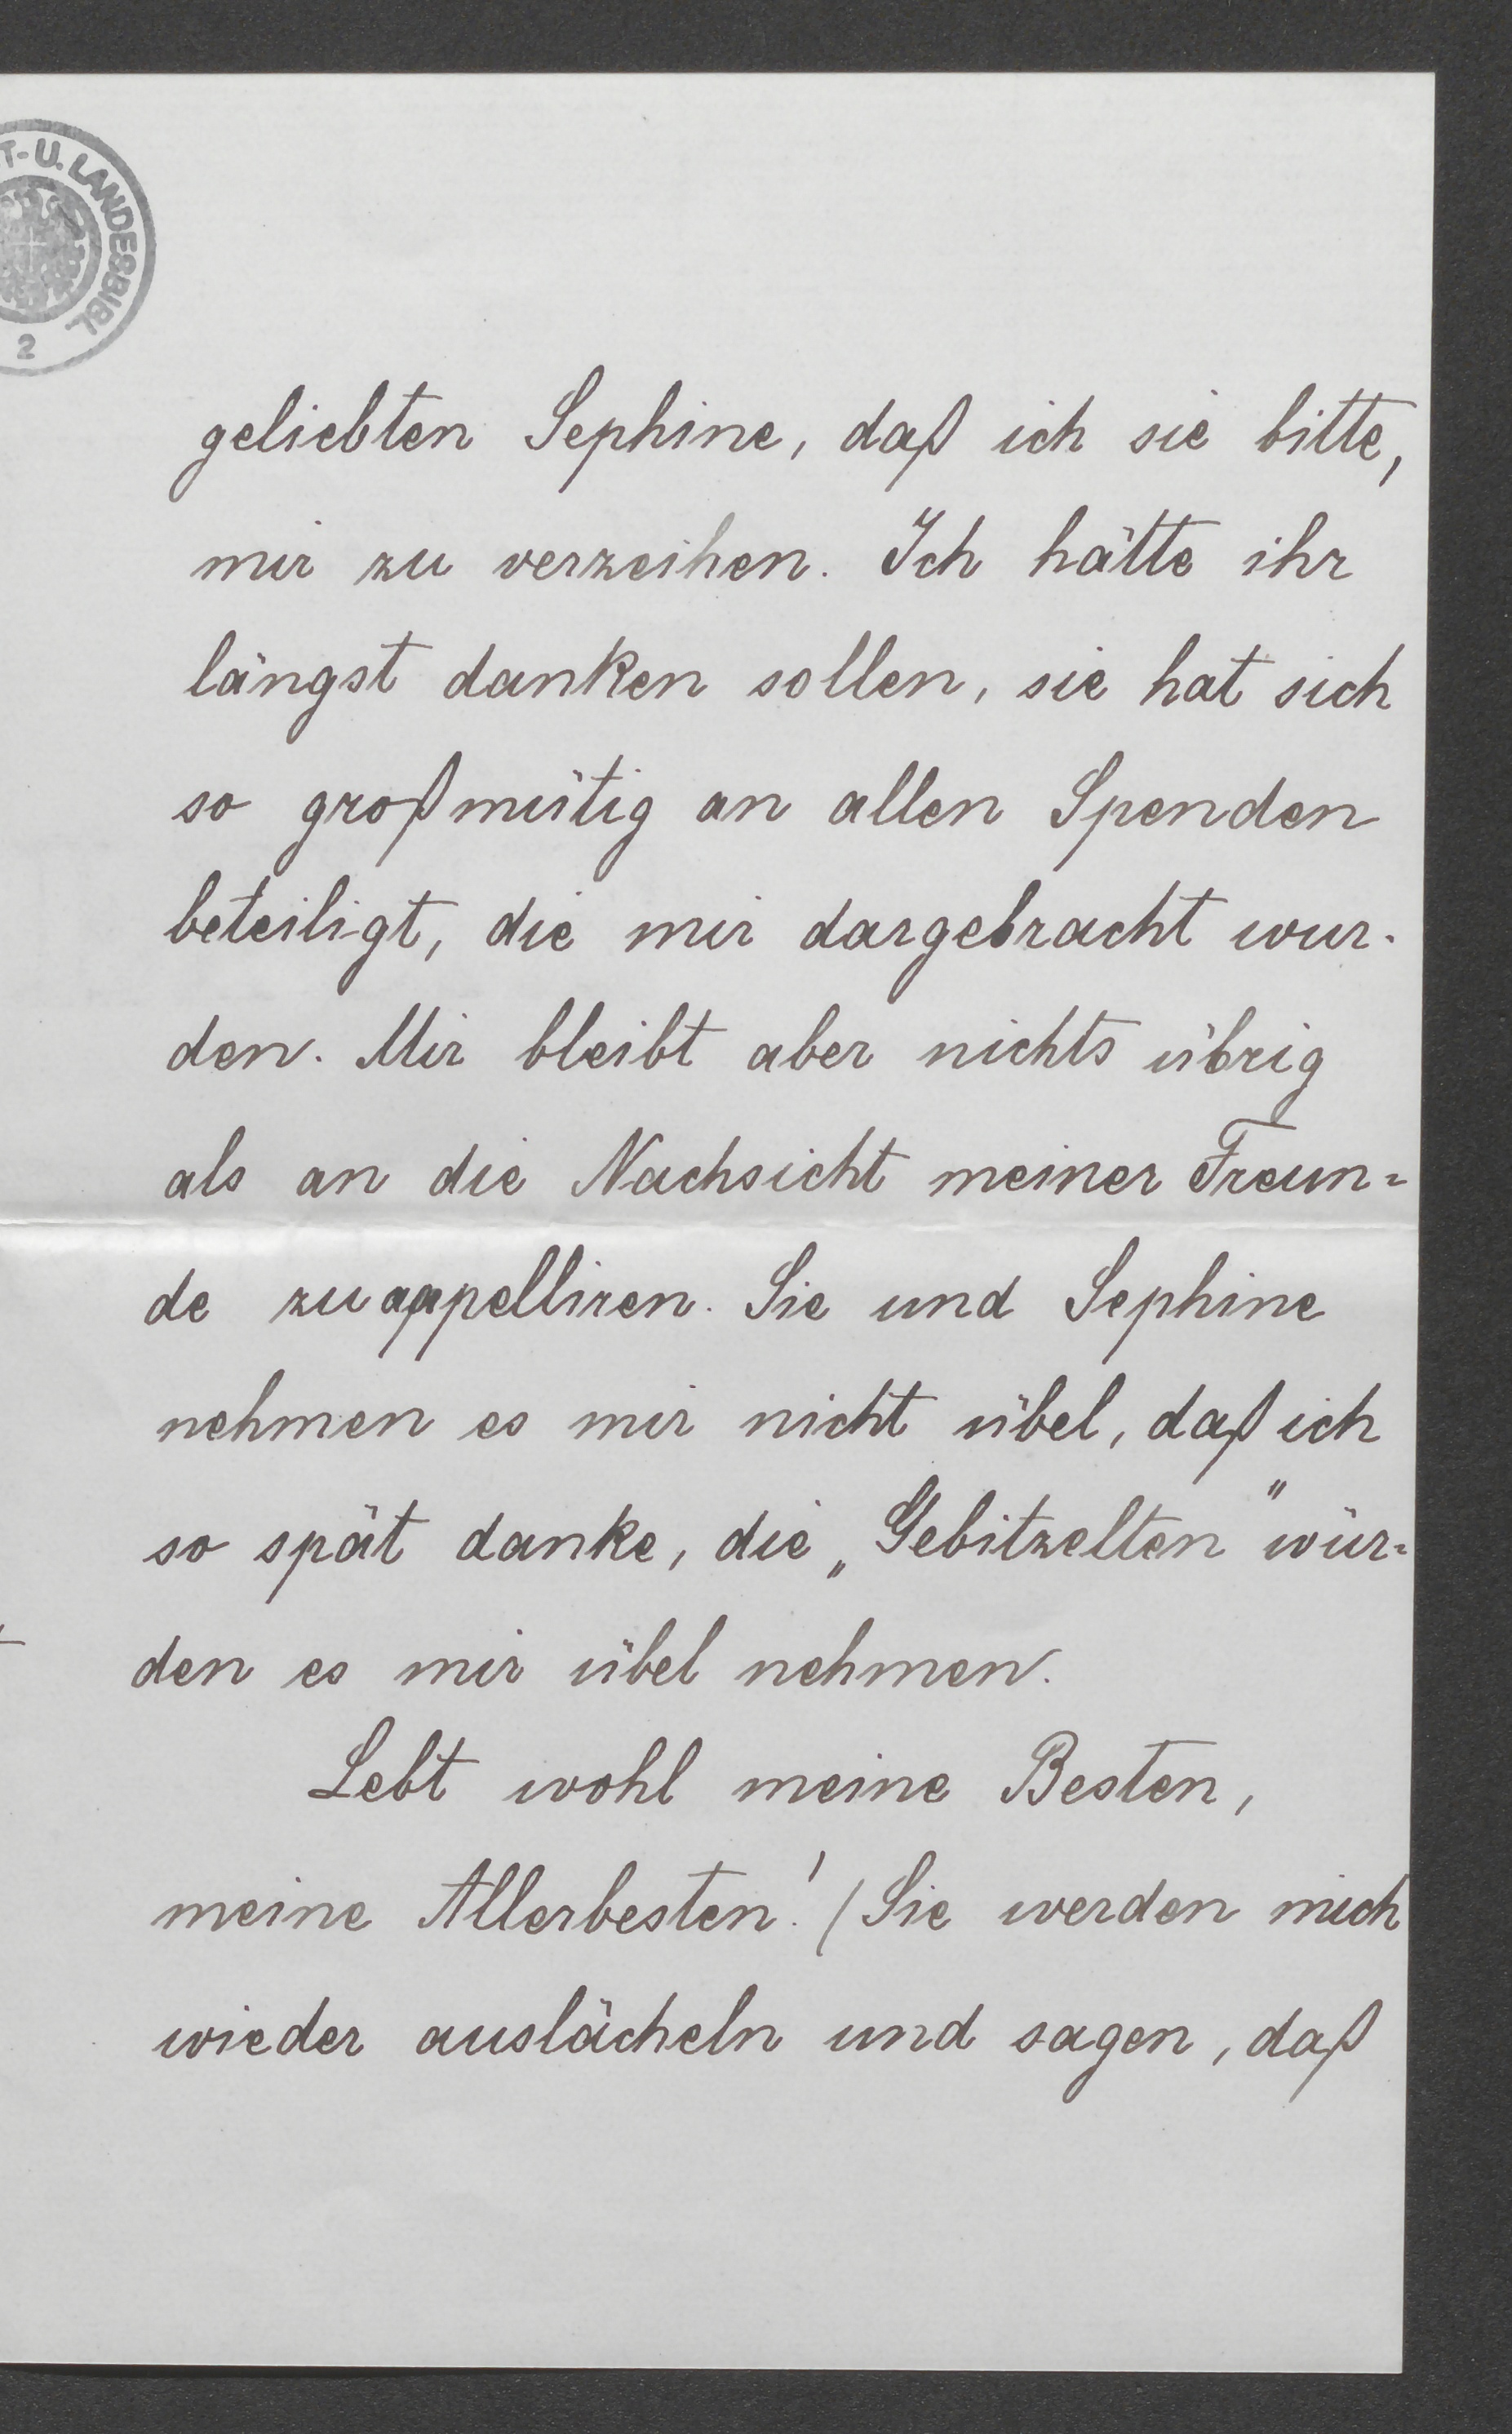 T-U. LANDESBIBL.
2
geliebten Sephine, daß ich sie bitte,
mir zu verzeihen. Ich hätte ihr
längst danken sollen, sie hat sich
so großmütig an allen Spenden
beteiligt, die mir dargebracht wur-
den. Mir bleibt aber nichts übrig
als an die Nachsicht meiner Freun=
de zu appelliren. Sie und Sephine
nehmen es mir nicht übel, daß ich
so spät danke, die „Gebitzelten" wür=
den es mir übel nehmen.
Lebt wohl meine Besten,
meine Allerbesten! (Sie werden mich
wieder auslächeln und sagen, daß